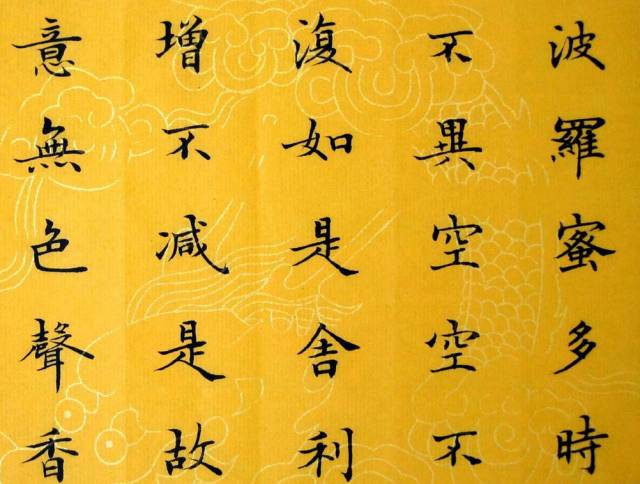 波羅蜜多時
不異空空不
復如是舍利
增不減是故
意無色聲香